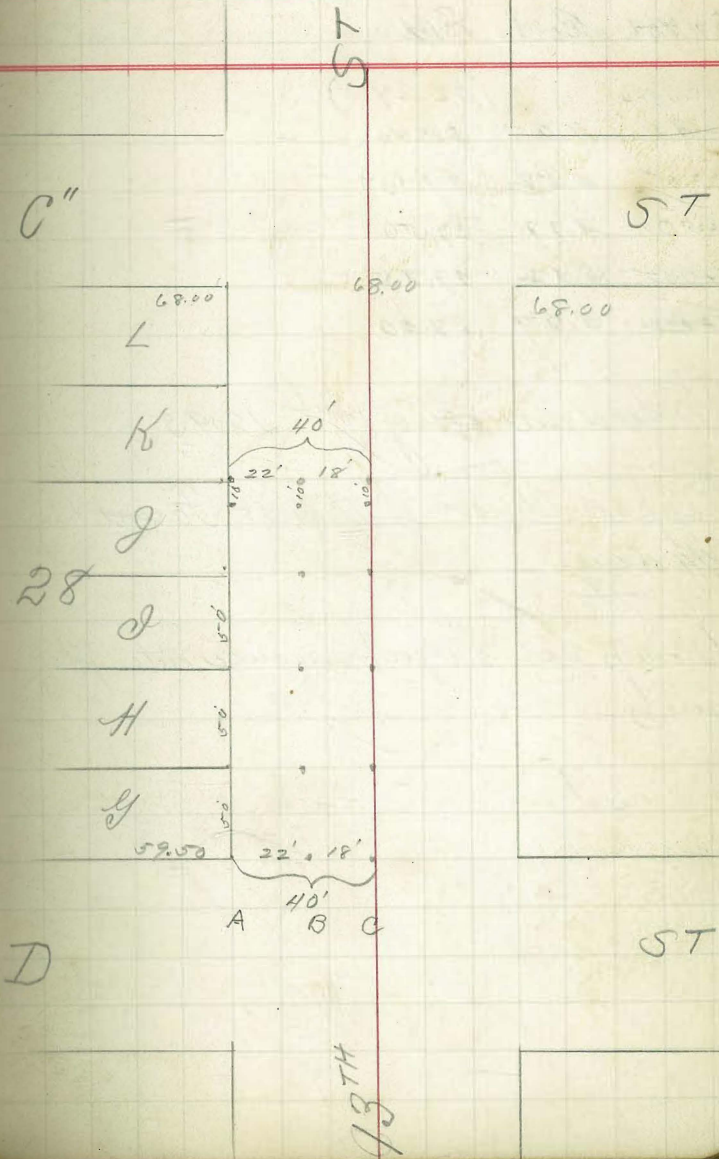 ST
C" ST
68.00 68.00 68.00
L
K
40'
22' 18'
10' 10' 10'
J
28
I 50'
H 50'
G 50'
59.50 22' 18'
40'
A B C
D ST
13TH